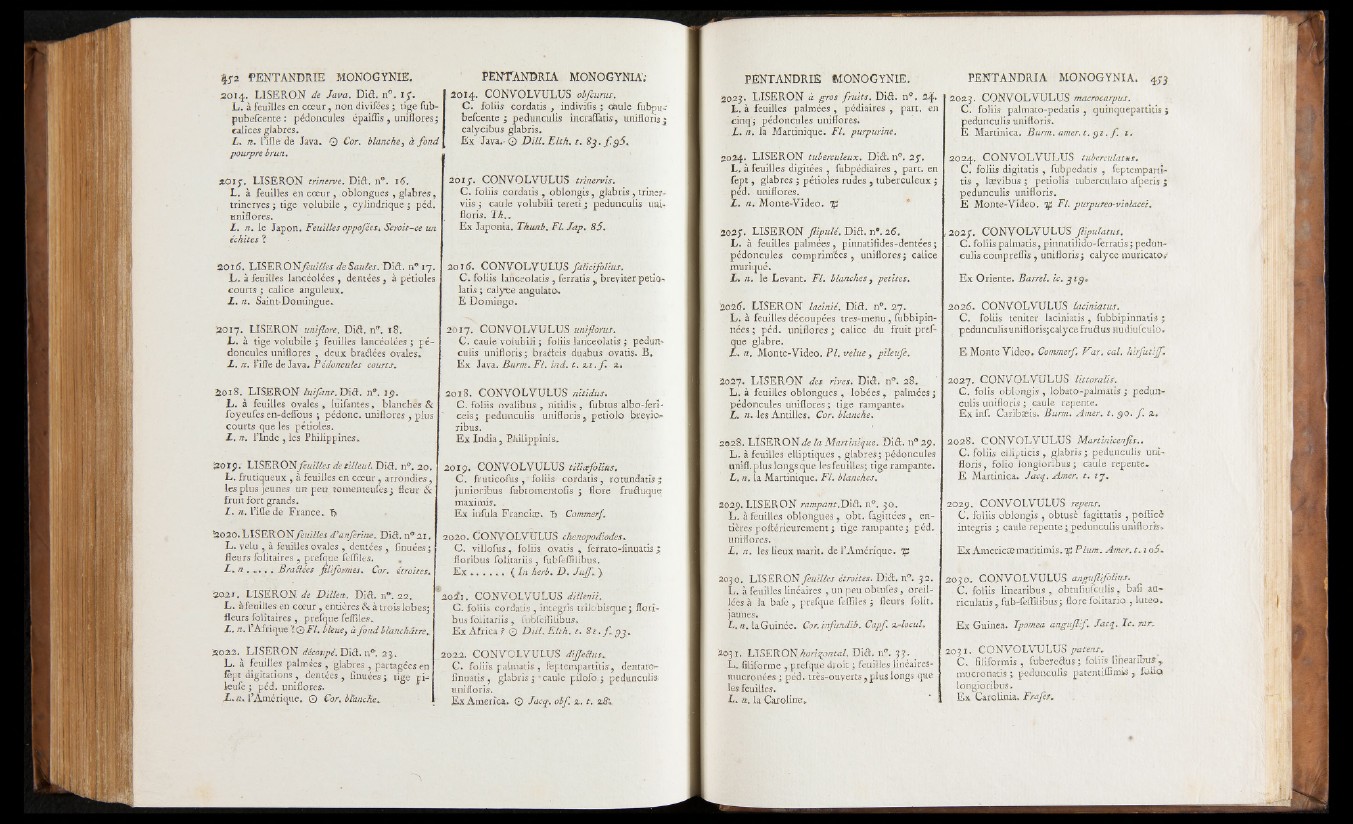 452 PENTANDRIE MONOGYNIE.
2014. LISERON de Java. Dict. n°. 15.
L. à feuilles en cœur, non divisées; tige sub-
pubescente : pédoncules épaissis, uniflores;
calices glabres.
L. n. l'isle de Java. ☉ Cor. blanche, à fond
pourpre brun.
2015. LISERON trinerve. Dict. n°. 16.
L. à feuilles en cœur, oblongues, glabres,
trinerves; tige volubile, cylindrique; péd.
uniflores.
L. n. le Japon. Feuilles opposées. Seroit-ce un
échites ?
2016. LISERON feuilles de Saules. Dict. n° 17.
L. à feuilles lancéolées, dentées, à pétioles
courts; calice anguleux.
L. n. Saint-Domingue.
2017. LISERON uniflore. Dict. n°. 18.
L. à tige volubile; feuilles lancéolées; pé-
doncules uniflores, deux bractées ovales.
L. n. l'isle de Java. Pédoncules courts.
2018. LISERON luisant. Dict. n°. 19.
L. à feuilles ovales, luisantes, blanches &
soyeuses en-dessous; pédonc. uniflores, plus
courts que les pétioles.
L. n. l'Inde, les Philippines.
2019. LISERON feuilles de tilleul. Dict. n°. 20.
L. frutiqueux, à feuilles en cœur, arrondies,
les plus jeunes un peu tomenteuses; fleur &
fruit fort grands.
L. n. l'isle de France. ♄
2020. LISERON feuilles d'anserine. Dict. n° 21.
L. velu, à feuilles ovales, dentées, sinuées;
fleurs solitaires, presque sessiles.
L. n . . . . . Bractées filiformes. Cor. étroites.
2021. LISERON de Dillen. Dict. n°. 22.
L. à feuilles en cœur, entières & à trois lobes;
fleurs solitaires, presque sessiles.
L. n. l'Afrique ? ☉ Fl. bleue, à fond blanchâtre.
2022. LISERON découpé. Dict. n°. 23.
L. à feuilles palmées, glabres, partagées en
sept digitations, dentées, sinuées; tige pi-
leuse; péd. uniflores.
L. n. l'Amérique. ☉ Cor. blanche.
PENTANDRIA MONOGYNIA.
2014. CONVOLVULUS obscurus.
C. foliis cordatis, indivisis; caule subpu-
bescente; pedunculis incrassatis, unifloris;
calycibus glabris.
Ex Java. ☉ Dill. Elth. t. 83. f. 95.
2015. CONVOLVULUS trinervis.
C. foliis cordatis, oblongis, glabris, triner-
viis; caule volubili tereti; pedunculis uni-
floris. Th..
Ex Japonia. Thunb. Fl. Jap. 85.
2016. CONVOLVULUS salicifolius.
C. foliis lanceolatis, serratis, breviter petio-
latis; calyce angulato.
E Domingo.
2017. CONVOLVULUS uniflorus.
C. caule volubili; foliis lanceolatis; pedun-
culis unifloris; bracteis duabus ovatis. B.
Ex Java. Burm. Fl. ind. t. 21. f. 2.
2018. CONVOLVULUS nitidus.
C. foliis ovalibus, nitidis, subtus albo-seri-
ceis; pedunculis unifloris, petiolo brevio-
ribus.
Ex India, Philippinis.
2019. CONVOLVULUS tiliæfolius.
C. fruticosus, foliis cordatis, rotundatis;
junioribus subtomentosis; flore fructuque
maximis.
Ex insula Franciæ. ♄ Commers.
2020. CONVOLVULUS chenopodiodes.
C. villosus, foliis ovatis, serrato-sinuatis;
floribus solitariis, subsessilibus.
Ex . . . . . . ( In herb. D. Juss. )
2021. CONVOLVULUS dillenii.
C. foliis cordatis, integris trilobisque; flori-
bus solitariis, subsessilibus.
Ex Africa ? ☉ Dill. Elth. t. 81. f. 93.
2022. CONVOLVULUS dissectus.
C. foliis palmatis, septempartitis, dentato-
sinuatis, glabris; caule piloso; pedunculis
unifloris.
Ex America. ☉ Jacq. obs. 2. t. 28.
PENTANDRIE MONOGYNIE.
2023. LISERON à gros fruits. Dict. n°. 24.
L. à feuilles palmées, pédiaires, part. en
cinq; pédoncules uniflores.
L. n. la Martinique. Fl. purpurine.
2024. LISERON tuberculeux. Dict. n°. 25.
L. à feuilles digitées, subpédiaires, part. en
sept, glabres; pétioles rudes, tuberculeux;
péd. uniflores.
L. n. Monte-Video. ♃
2025. LISERON stipulé. Dict. n°. 26.
L. à feuilles palmées, pinnatifides-dentées;
pédoncules comprimées, uniflores; calice
muriqué.
L. n. le Levant. Fl. blanches, petites.
2026. LISERON lacinié. Dict. n°. 27.
L. à feuilles découpées tres-menu, subbipin-
nées; péd. uniflores; calice du fruit pres-
que glabre.
L. n. Monte-Video. Pl. velue, pileuse.
2027. LISERON des rives. Dict. n°. 28.
L. à feuilles oblongues, lobées, palmées;
pédoncules uniflores; tige rampante.
L. n. les Antilles. Cor. blanche.
2028. LISERON de la Martinique. Dict. n° 29.
L. à feuilles elliptiques, glabres; pédoncules
unifl. plus longs que les feuilles; tige rampante.
L. n. la Martinique. Fl. blanches.
2029. LISERON rampant. Dict. n°. 30.
L. à feuilles oblongues, obt. sagittées, en-
tières postérieurement; tige rampante; péd.
uniflores.
L. n. les lieux marit. de l'Amérique. ♃
2030. LISERON feuilles étroites. Dict. n°. 32.
L. à feuilles linéaires, un peu obtuses, oreil-
lées à la base, presque sessiles; fleurs solit.
jaunes.
L. n. la Guinée. Cor. infundib. Caps. 2-locul.
2031. LISERON horizontal. Dict. n°. 33.
L. filiforme, presque droit; feuilles linéaires-
mucronées; péd. très-ouverts, plus longs que
les feuilles.
L. n. la Caroline.
PENTANDRIA MONOGYNIA. 453
2023. CONVOLVULUS macrocarpus.
C. foliis palmato-pedatis, quinquepartitis;
pedunculis unifloris.
E Martinica. Burm. amer. t. 92. f. 1.
2024. CONVOLVULUS tuberculatus.
C. foliis digitatis, subpedatis, septemparti-
tis, lævibus; petiolis tuberculato asperis;
pedunculis unifloris.
E Monte-Video. ♃ Fl. purpureo-violacei.
2025. CONVOLVULUS stipulatus.
C. foliis palmatis, pinnatifido-serratis; pedun-
culis compressis, unifloris; calyce muricato.
Ex Oriente. Barrel. ic. 319.
2026. CONVOLVULUS laciniatus.
C. foliis tenuiter laciniatis, subbipinnatis;
pedunculis unifloris; calyce fructus nudiusculo.
E Monte Video. Commers. Var. cal. hirsutiss.
2027. CONVOLVULUS littoralis.
C. foliis oblongis, lobato-palmatis; pedun-
culis unifloris; caule repente.
Ex inf. Caribæis. Burm. Amer. t. 90. f. 2.
2028. CONVOLVULUS Martinicensis..
C. foliis ellipticis, glabris; pedunculis uni-
floris, folio longioribus; caule repente.
E Martinica. Jacq. Amer. t. 17.
2029. CONVOLVULUS repens.
C. foliis oblongis, obtusè sagittatis, posticè
integris; caule repente; pedunculis unifloris.
Ex Americæ maritimis. ♃ Plum. Amer. t. 105.
2030. CONVOLVULUS angustifolius.
C. foliis linearibus, obtusiusculis, basi au-
riculatis, sub-sessilibus; flore solitario, luteo.
Ex Guinea. Ipomea angustif. Jacq. Ic. rar.
2031. CONVOLVULUS patens.
C. filiformis, suberectus; foliis linearibus,
mucronatis; pedunculis patentissimis, folio
longioribus.
Ex Carolinia. Fraser.